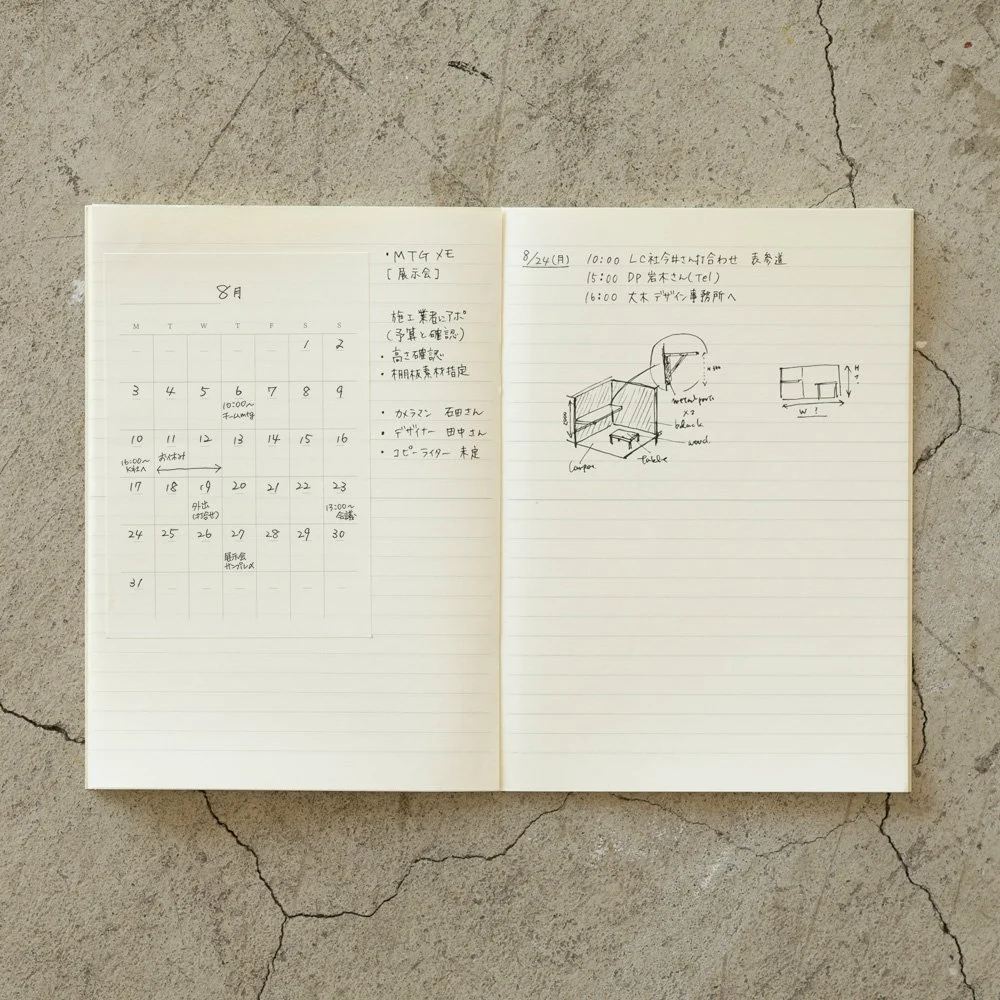 8月
M T W T F S S
1 2
3 4 5 6 7 8 9
10:00〜
チームmtg
10 11 12 13 14 15 16
お休み
17 18 19 20 21 22 23
外出
13:00〜
会議
24 25 26 27 28 29 30
展示会
31
・MTGメモ
[展示会]
施工業者にアポ
(予算と確認)
・高さ確認
・棚板素材指定
・カメラマン 石田さん
・デザイナー 田中さん
・コピーライター 未定
8/24(月) 10:00 LC社今井さん打合わせ 表参道
15:00 DP岩木さん(Tel)
16:00 大木デザイン事務所へ
x2
black
wood
table
H
W !